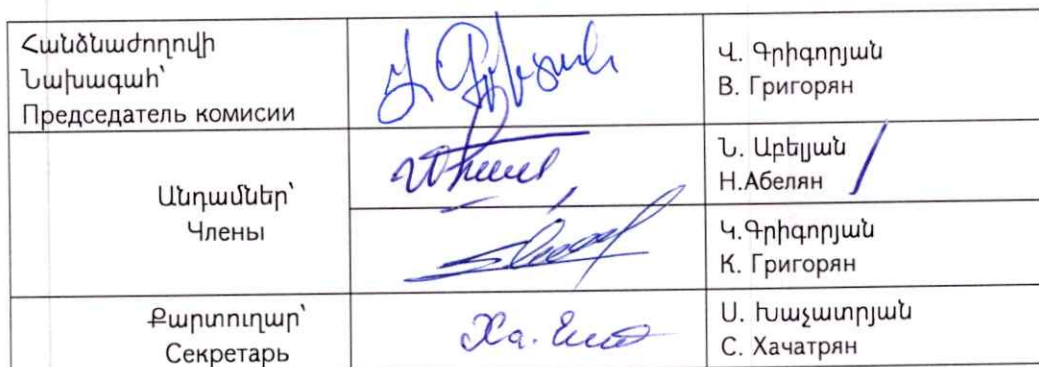 Հանձնաժողովի
Նախագահ՝
Председатель комисии
Վ. Գրիգորյան
В. Григорян
Անդամներ՝
Члены
Ն. Աբելյան
Н.Абелян
Կ.Գրիգորյան
К. Григорян
Քարտուղար՝
Секретарь
Ս. Խաչատրյան
С. Хачатрян